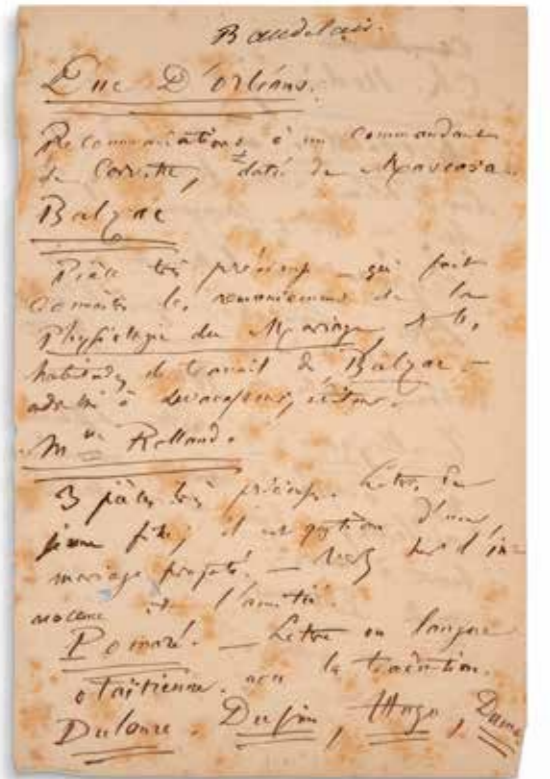 Baudelaire.
Duc D'orléans.
Recommandations à un commandant
de Corvette, daté de Mascara.
Balzac
Pièce très précieuse – qui fait
connaître les remaniements de la
Physiologie du Mariage & les
habitudes de travail de Balzac –
adressé à Levavasseur, éditeur.
Mme Rolland.
3 pièces très précieuses. Lettre de
jeune fille, il est question d'un
mariage projeté. – sur l'in-
nocence et l'amitié.
Pomaré. – Lettre en langue
otaïtienne. avec la traduction.
Dulaure. Dupin, Hugo, Dumas